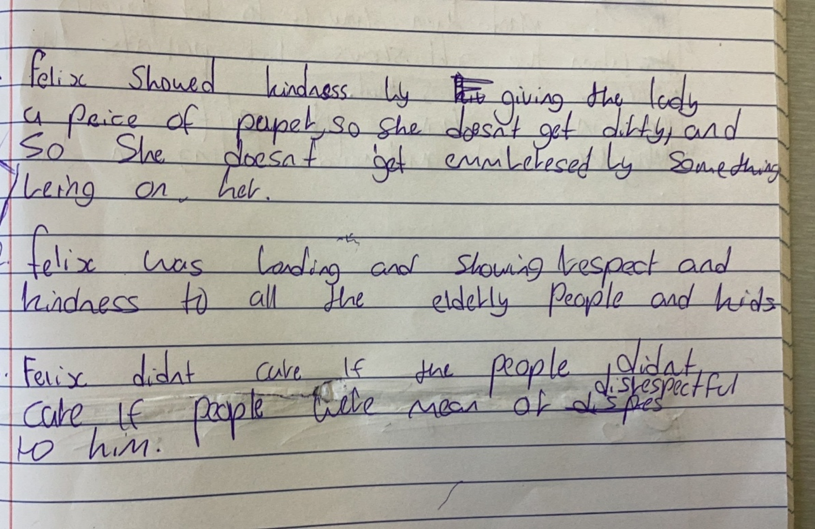 Felix Showed kindness by giving the lady
a peice of paper, so she doesn't get dirty, and
So She doesn't get emmberesed by Something
being on her.
Felix was and showing respect and
kindness to all the elderly People and kids
Felix didnt care If the people didnt
care, If people were mean or disrespectful
to him.